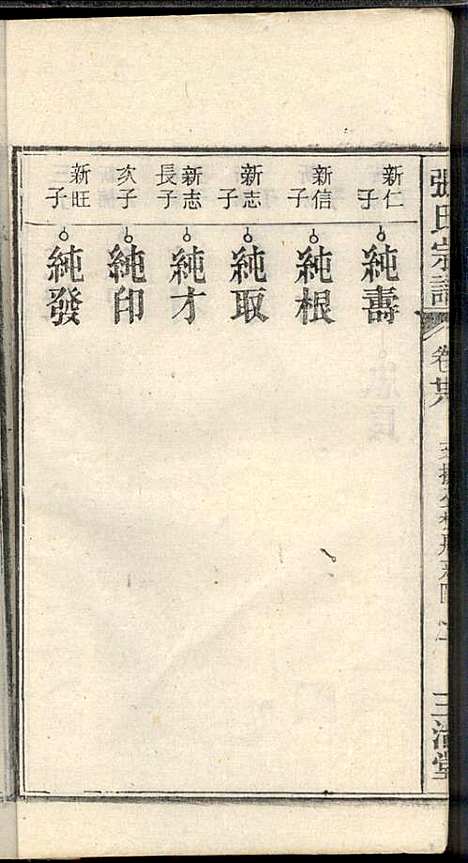 張氏宗譜
卷廿八
三治堂
新仁子
純壽
新信子
純根
新志子
純取
新志長子
純才
次子
純印
新旺子
純發